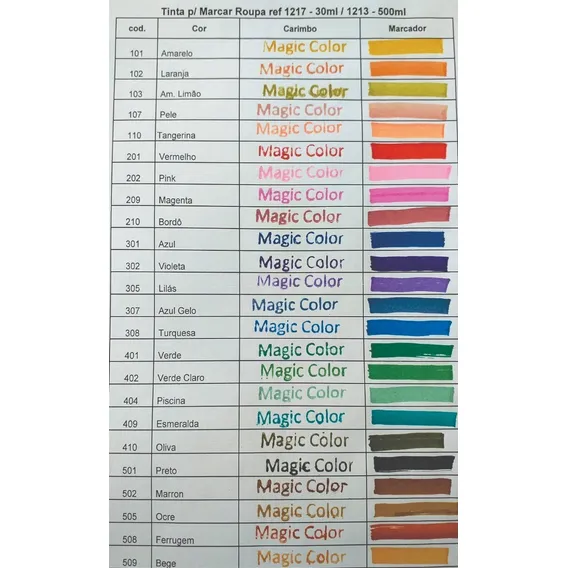 Tinta p/ Marcar Roupa ref 1217 - 30ml / 1213 - 500ml
cod. Cor Carimbo Marcador
101 Amarelo Magic Color
102 Laranja Magic Color
103 Am. Limão Magic Color
107 Pele Magic Color
110 Tangerina Magic Color
201 Vermelho Magic Color
202 Pink Magic Color
209 Magenta Magic Color
210 Bordô Magic Color
301 Azul Magic Color
302 Violeta Magic Color
305 Lilás Magic Color
307 Azul Gelo Magic Color
308 Turquesa Magic Color
401 Verde Magic Color
402 Verde Claro Magic Color
404 Piscina Magic Color
409 Esmeralda Magic Color
410 Oliva Magic Color
501 Preto Magic Color
502 Marron Magic Color
505 Ocre Magic Color
508 Ferrugem Magic Color
509 Bege Magic Color